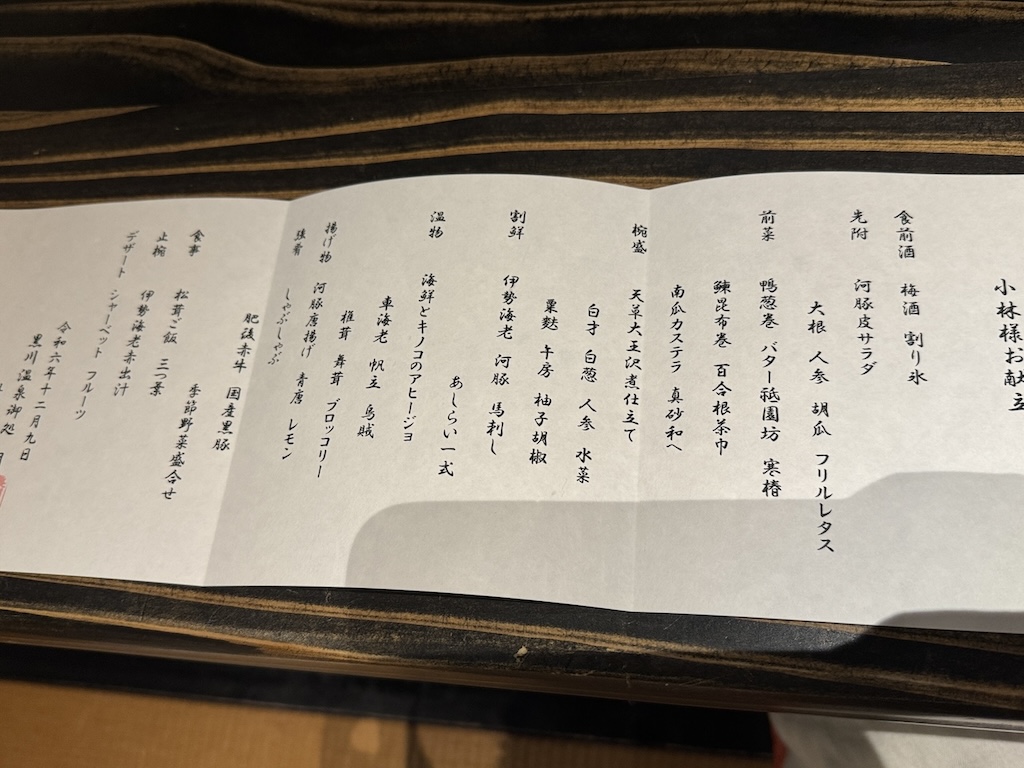 小林様お献立
食前酒 梅酒 割り氷
先附 河豚皮サラダ
大根 人参 胡瓜 フリルレタス
前菜 鴨葱巻 バター祗園坊 寒椿
鰊昆布巻 百合根茶巾
南瓜カステラ 真砂和へ
椀盛 天草大王沢煮仕立て
白才 白葱 人参 水菜
粟麩 午房 柚子胡椒
割鮮 伊勢海老 河豚 馬刺し
あしらい一式
温物 海鮮とキノコのアヒージョ
車海老 帆立 烏賊
椎茸 舞茸 ブロッコリー
揚げ物 河豚唐揚げ 青唐 レモン
強肴 しゃぶしゃぶ
肥後赤牛 国産黒豚
季節野菜盛合せ
食事 松茸ご飯 三つ葉
止椀 伊勢海老赤出汁
デザート シャーベット フルーツ
令和六年十二月九日
黒川温泉御処